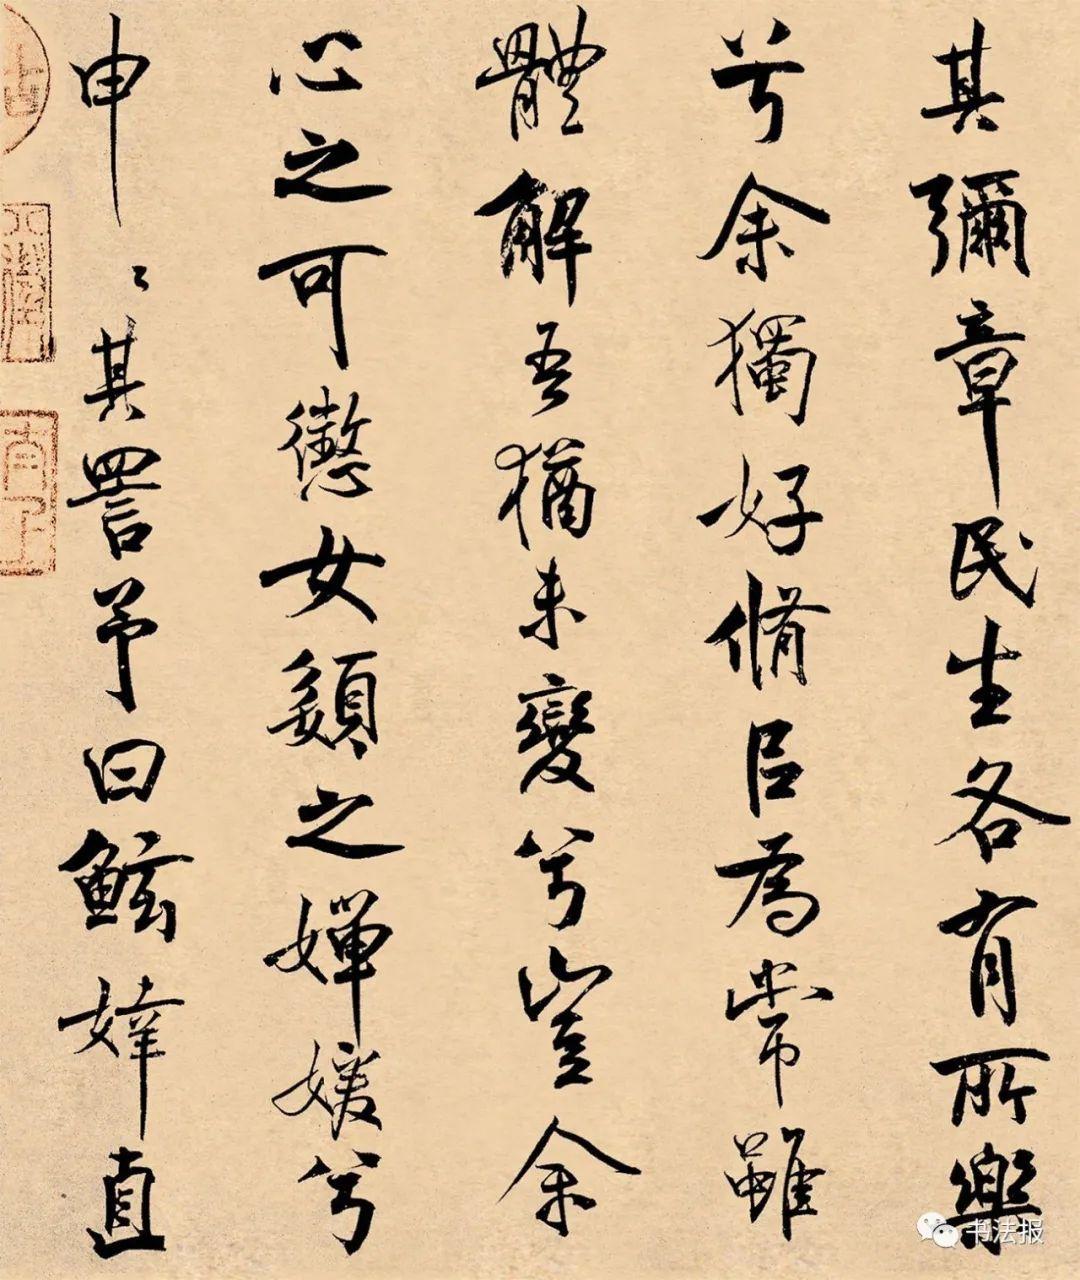 其彌章民生各有所樂
兮余獨好脩㠯為常雖
體解吾猶未變兮豈余
心之可懲女嬃之嬋媛兮
申〻其詈予曰鮌婞直
书法报